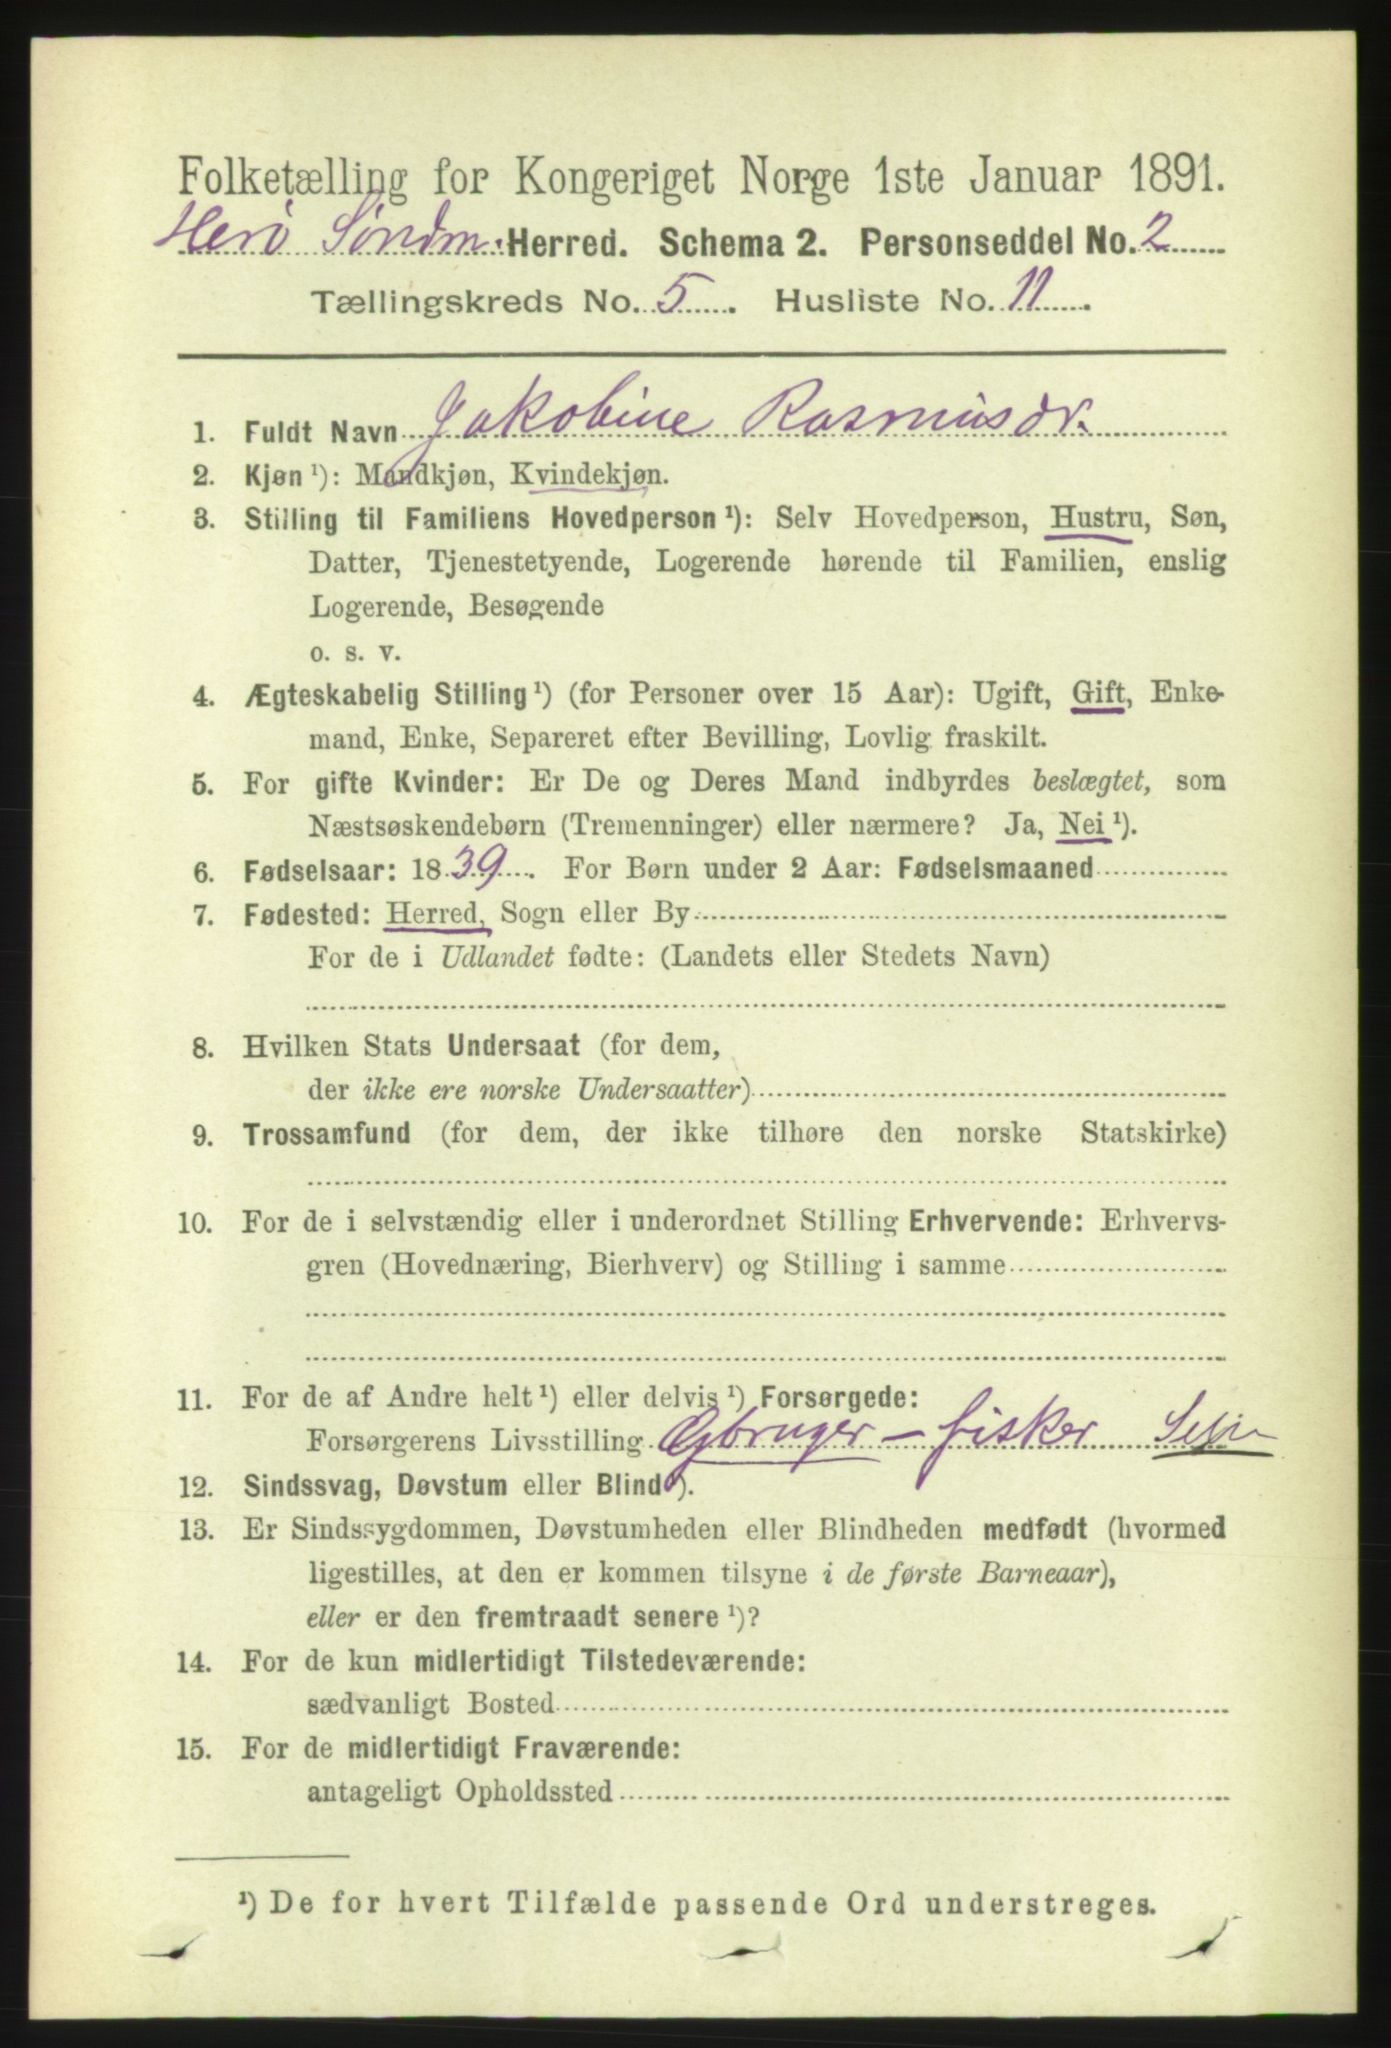 Folketælling for Kongeriget Norge 1ste Januar 1891.
Herö Söndm. Herred. Schema 2. Personseddel No. 2
Tællingskreds No. 5. Husliste No. 11.
1. Fuldt Navn Jakobine Rasmusdr.
2. Kjøn ¹): Mandkjøn, Kvindekjøn.
3. Stilling til Familiens Hovedperson ¹): Selv Hovedperson, Hustru, Søn,
Datter, Tjenestetyende, Logerende hørende til Familien, enslig
Logerende, Besøgende
o. s. v.
4. Ægteskabelig Stilling ¹) (for Personer over 15 Aar): Ugift, Gift, Enke-
mand, Enke, Separeret efter Bevilling, Lovlig fraskilt.
5. For gifte Kvinder: Er De og Deres Mand indbyrdes beslægtet, som
Næstsøskendebørn (Tremenninger) eller nærmere? Ja, Nei ¹).
6. Fødselsaar: 1839. For Børn under 2 Aar: Fødselsmaaned
7. Fødested: Herred, Sogn eller By
For de i Udlandet fødte: (Landets eller Stedets Navn)
8. Hvilken Stats Undersaat (for dem,
der ikke ere norske Undersaatter)
9. Trossamfund (for dem, der ikke tilhøre den norske Statskirke)
10. For de i selvstændig eller i underordnet Stilling Erhvervende: Erhvervs-
gren (Hovednæring, Bierhverv) og Stilling i samme
11. For de af Andre helt ¹) eller delvis ¹) Forsørgede:
Forsørgerens Livsstilling Gbruger – fisker
12. Sindssvag, Døvstum eller Blind ¹).
13. Er Sindssygdommen, Døvstumheden eller Blindheden medfødt (hvormed
ligestilles, at den er kommen tilsyne i de første Barneaar),
eller er den fremtraadt senere ¹)?
14. For de kun midlertidigt Tilstedeværende:
sædvanligt Bosted
15. For de midlertidigt Fraværende:
antageligt Opholdssted
¹) De for hvert Tilfælde passende Ord understreges.